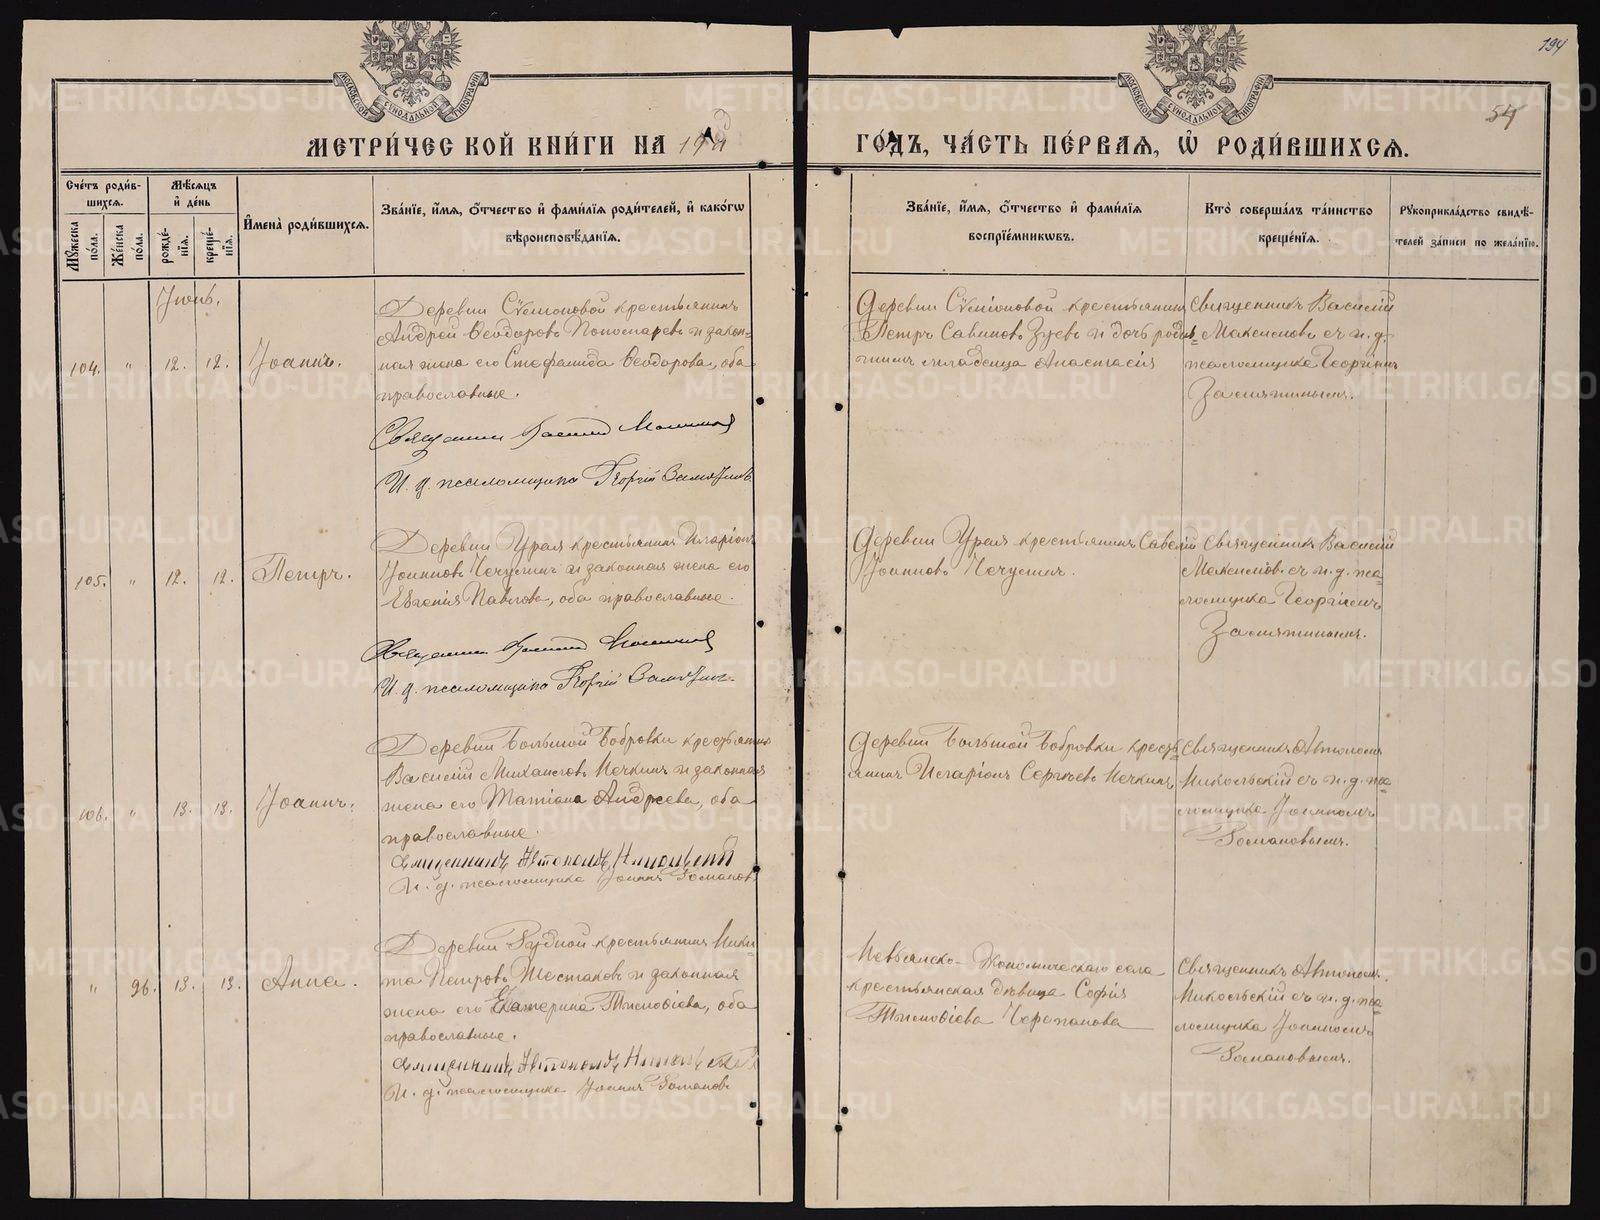 194
54
МОСКОВСКОЙ СѴНОДАЛЬНОЙ ТИПОГРАФІИ
МОСКОВСКОЙ СѴНОДАЛЬНОЙ ТИПОГРАФІИ
МЕТРИ́ЧЕСКОЙ КНИ́ГИ НА
ГО́ДЪ, ЧА́СТЬ ПЕ́РВАѦ, Ѡ҆ РОДИ́ВШИХСѦ.
Сче́тъ роди́в-
шихсѧ.
Мꙋ́жеска по́ла.
Же́нска по́ла.
Мѣ́сѧцъ
и҆ де́нь
рожде́-
нїѧ.
креще́-
нїѧ.
И҆мена̀ роди́вшихсѧ.
Зва́нїе, и҆́мѧ, ѻ҆́тчество и҆ фами́лїѧ роди́телей, и҆ како́гѡ
вѣроисповѣ́данїѧ.
Зва́нїе, и҆́мѧ, ѻ҆́тчество и҆ фами́лїѧ
воспрїе́мникѡвъ.
Кто̀ соверша́лъ та́инство
креще́нїѧ.
Рꙋкоприкла́дство свидѣ́-
телей за́писи по жела́нїю.
Іюнь.
104. " 12. 12. Іоаннъ.
Деревни Сѵмоновой крестьянинъ
Андрей Ѳеодоровъ Пономаревъ и закон-
ная жена его Стефанида Ѳеодорова, оба
православные.
Священникъ Василій
И. д. псаломщика Георгій Замятинъ
Деревни Сѵмоновой крестьянинъ
Петръ Савиновъ Зуевъ и дочь роди-
младенца Анастасія
Священникъ Василій
Максимовъ съ и. д.
псаломщика Георгіемъ
Замятинымъ.
105. " 12. 12. Петръ.
Деревни Урая крестьянинъ Иларіонъ
Іоанновъ Чечулинъ и законная жена его
Евгенія Павлова, оба православные.
Священникъ Василій
И. д. псаломщика Георгій Замятинъ.
Деревни Урая крестьянинъ Савелій
Іоанновъ Чечулинъ.
Священникъ Василій
Максимовъ съ и. д. пса-
ломщика Георгіемъ
Замятинымъ.
106. " 13. 13. Іоаннъ.
Деревни Большой Бобровки крестьянинъ
Василій Михаиловъ Мечкинъ и законная
жена его Татіана Андреева, оба
православные.
Священникъ Автономъ Никольскій
И. д. псаломщика Іоаннъ Романовъ.
Деревни Большой Бобровки кресть-
янинъ Иларіонъ Сергѣевъ Мечкинъ.
Священникъ Автономъ
Никольскій съ и. д. пса-
ломщика Іоанномъ
Романовымъ.
" 96. 13. 13. Анна.
Деревни Рудной крестьянинъ Ники-
та Петровъ Шестаковъ и законная
жена его Екатерина Тимоѳеева, оба
православные.
Священникъ Автономъ Никольскій
И. д. псаломщика Іоаннъ Романовъ
Невьянско-Экономическаго села
крестьянская дѣвица Софія
Тимоѳіева Черепанова
Священникъ Автономъ
Никольскій съ и. д. пса-
ломщика Іоанномъ
Романовымъ.
METRIKI.GASO-URAL.RU